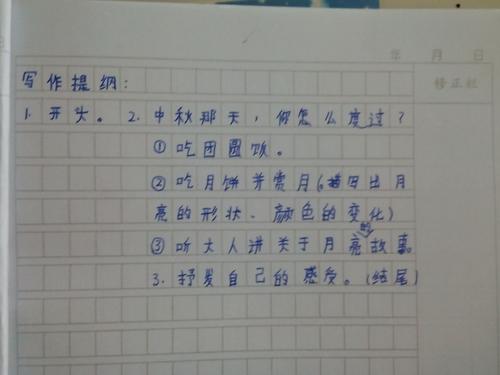 年 月 日
写作提纲:
修正栏
1. 开头。 2. 中秋那天，你怎么度过？
①吃团圆饭。
②吃月饼并赏月(描写出月
亮的形状、颜色的变化)
③听大人讲关于月亮的故事
3. 抒发自己的感受。(结尾)